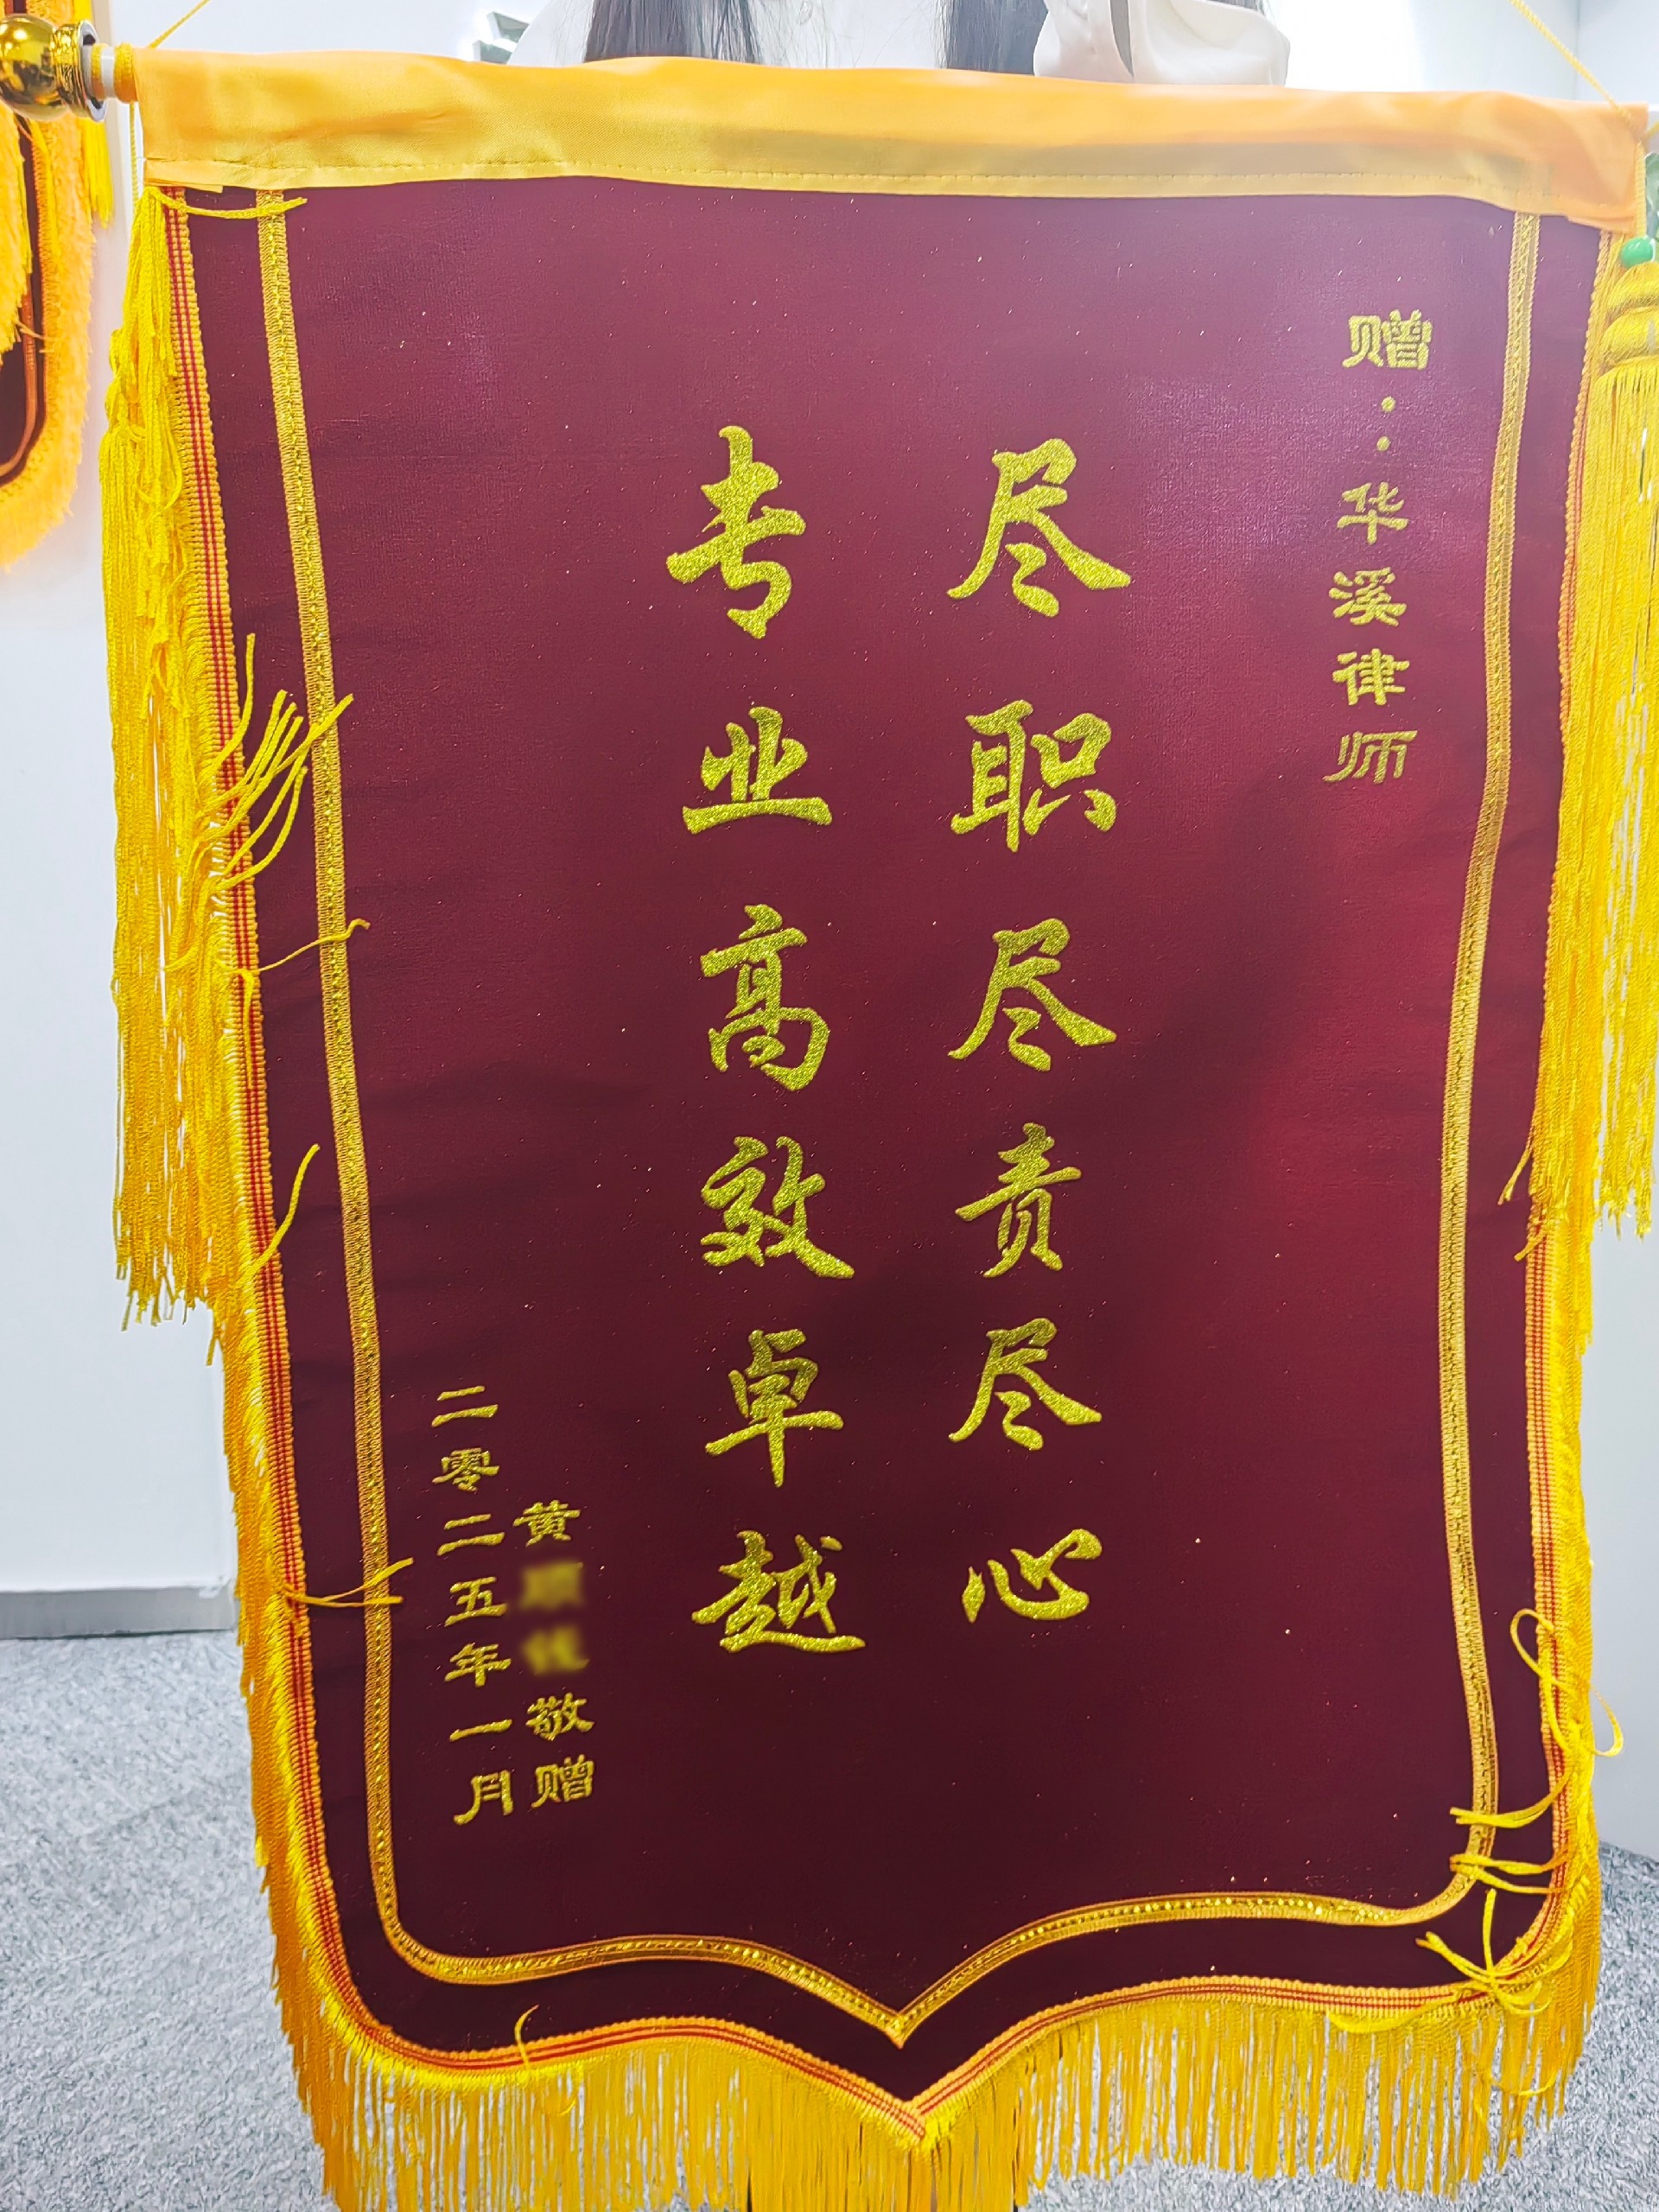 赠:华溪律师
尽职尽责尽心
专业高效卓越
黄敬赠
二零二五年一月